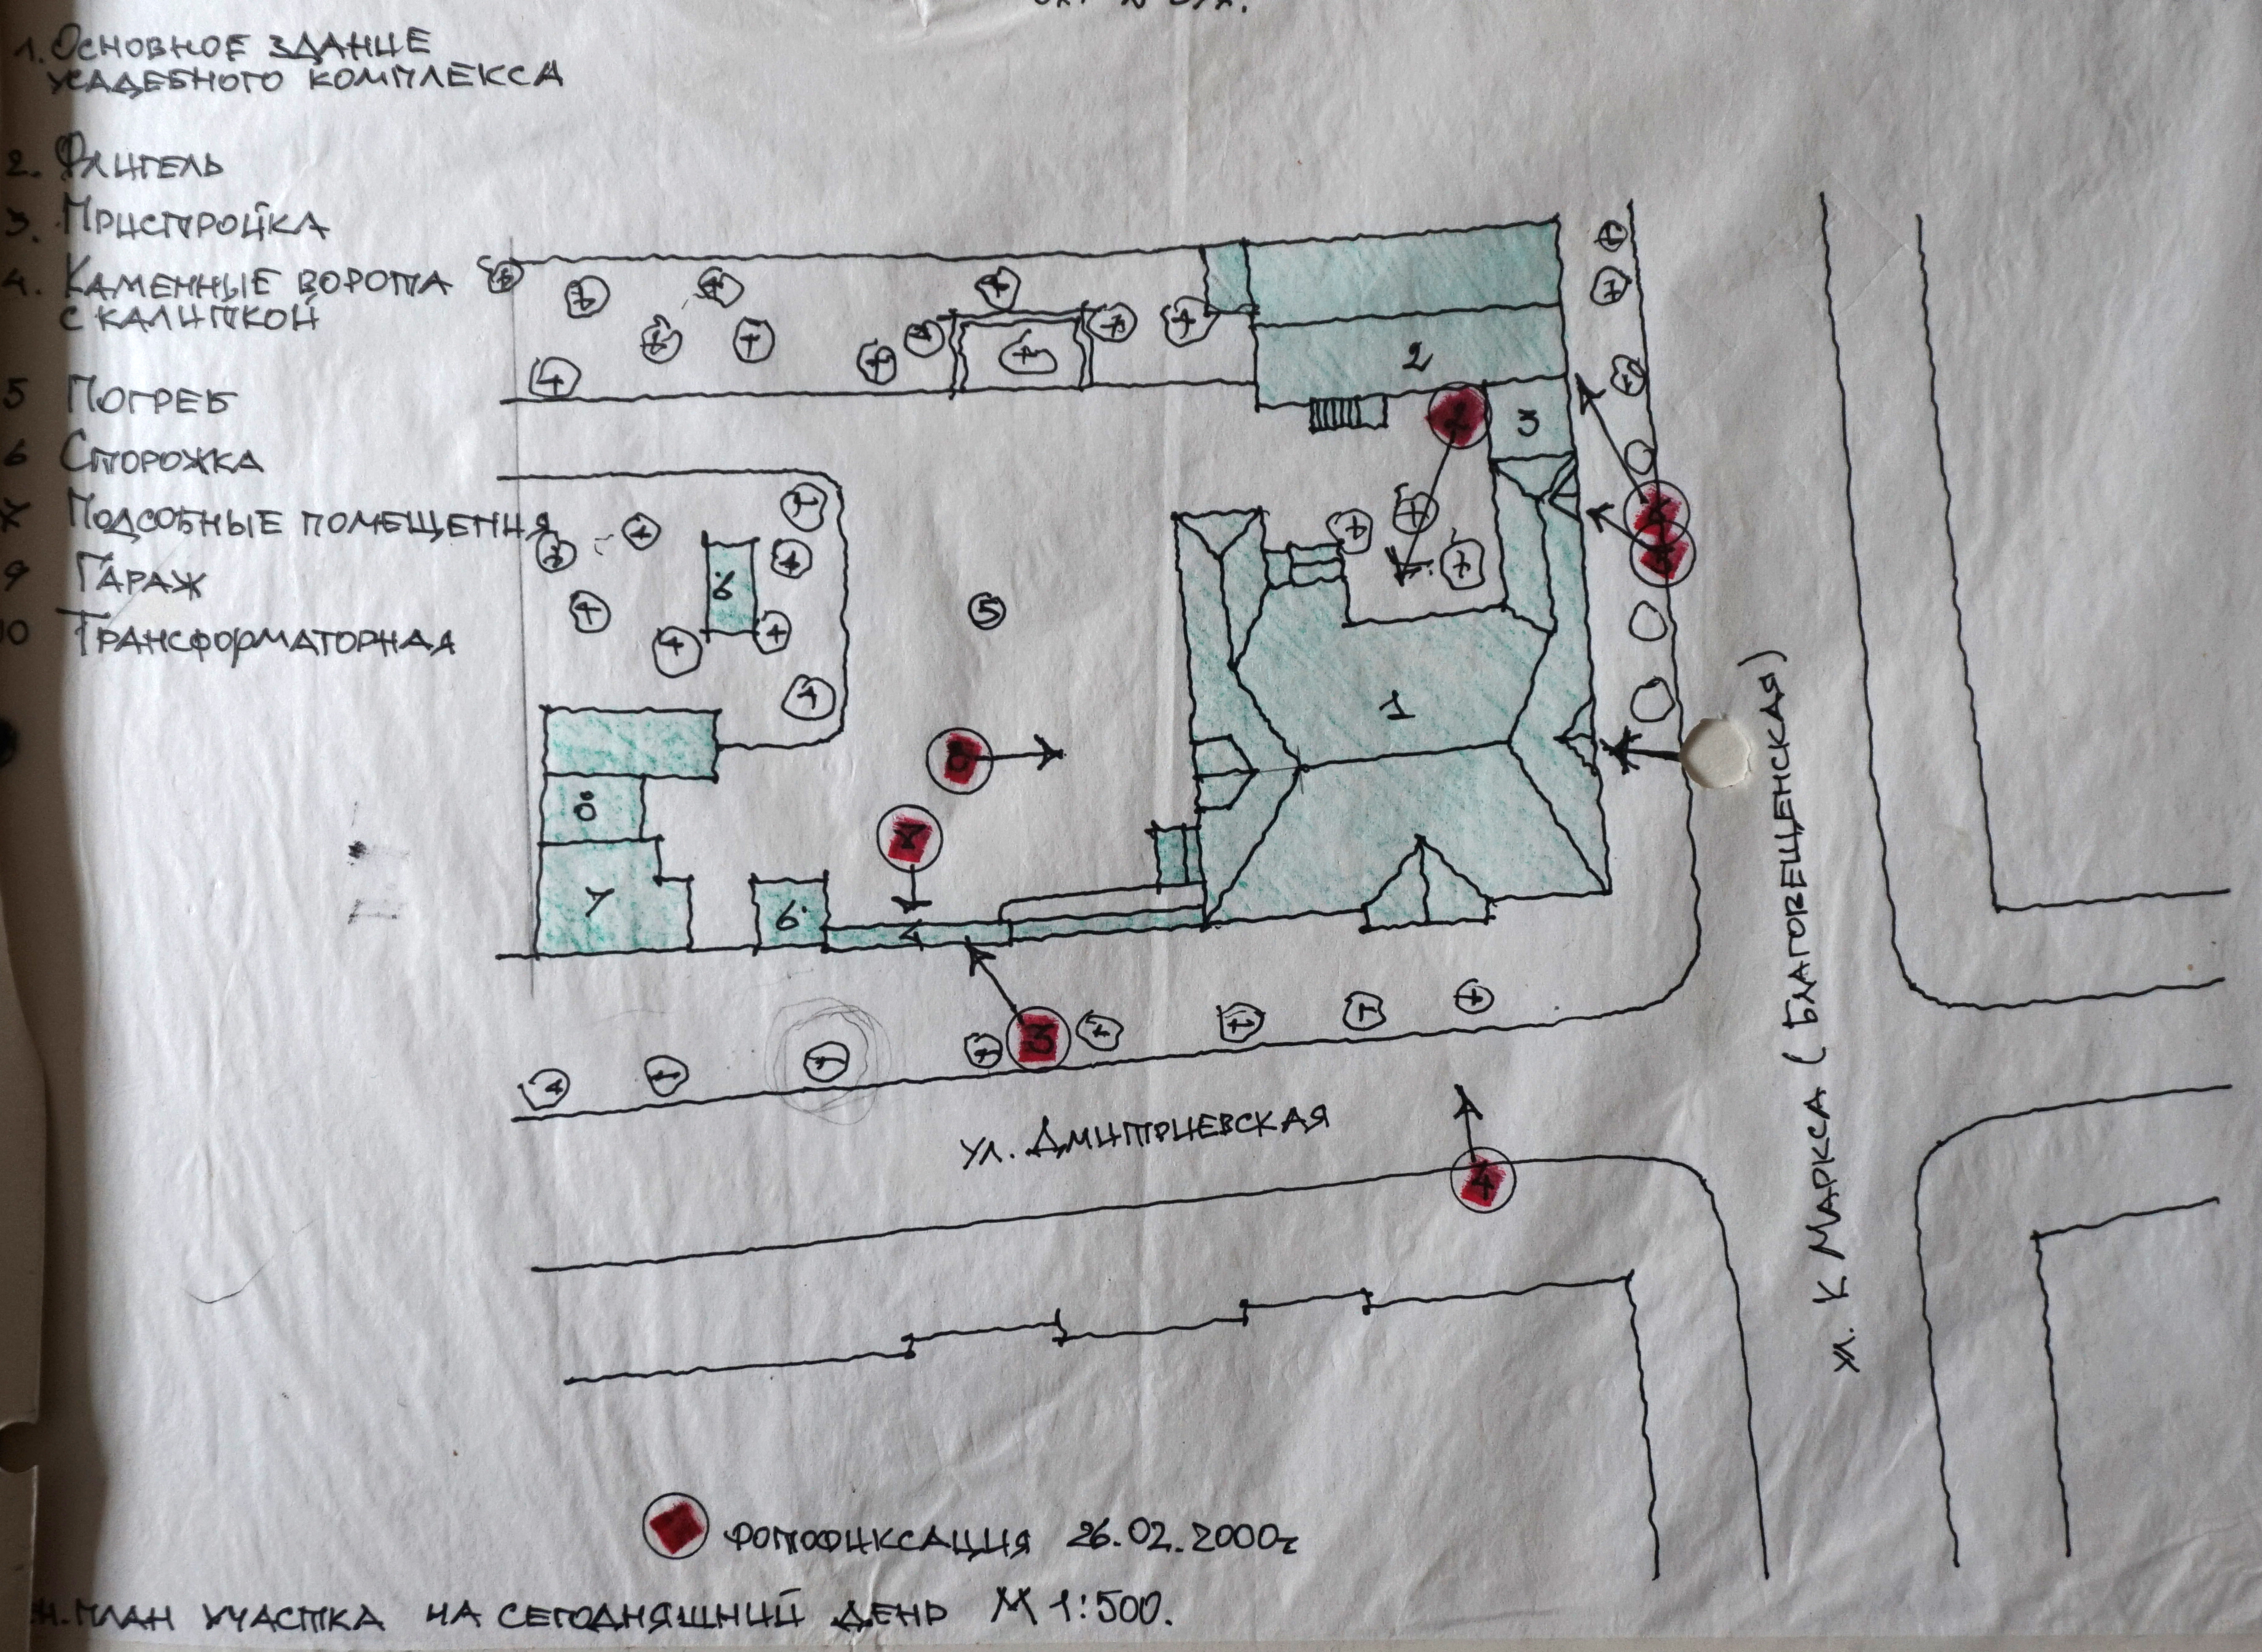 1. Основное здание
усадебного комплекса
2. Флигель
3. Пристройка
4. Каменные ворота
с калиткой
5 Погреб
6 Сторожка
7 Подсобные помещения
9 Гараж
10 Трансформаторная
2
3
2
3
6
5
1
8
7
7
6
4
3
4
ул. Дмитриевская
ул. К Маркса (Благовещенская)
фотофиксация 26.02.2000г
план участка на сегодняшний день М 1:500.